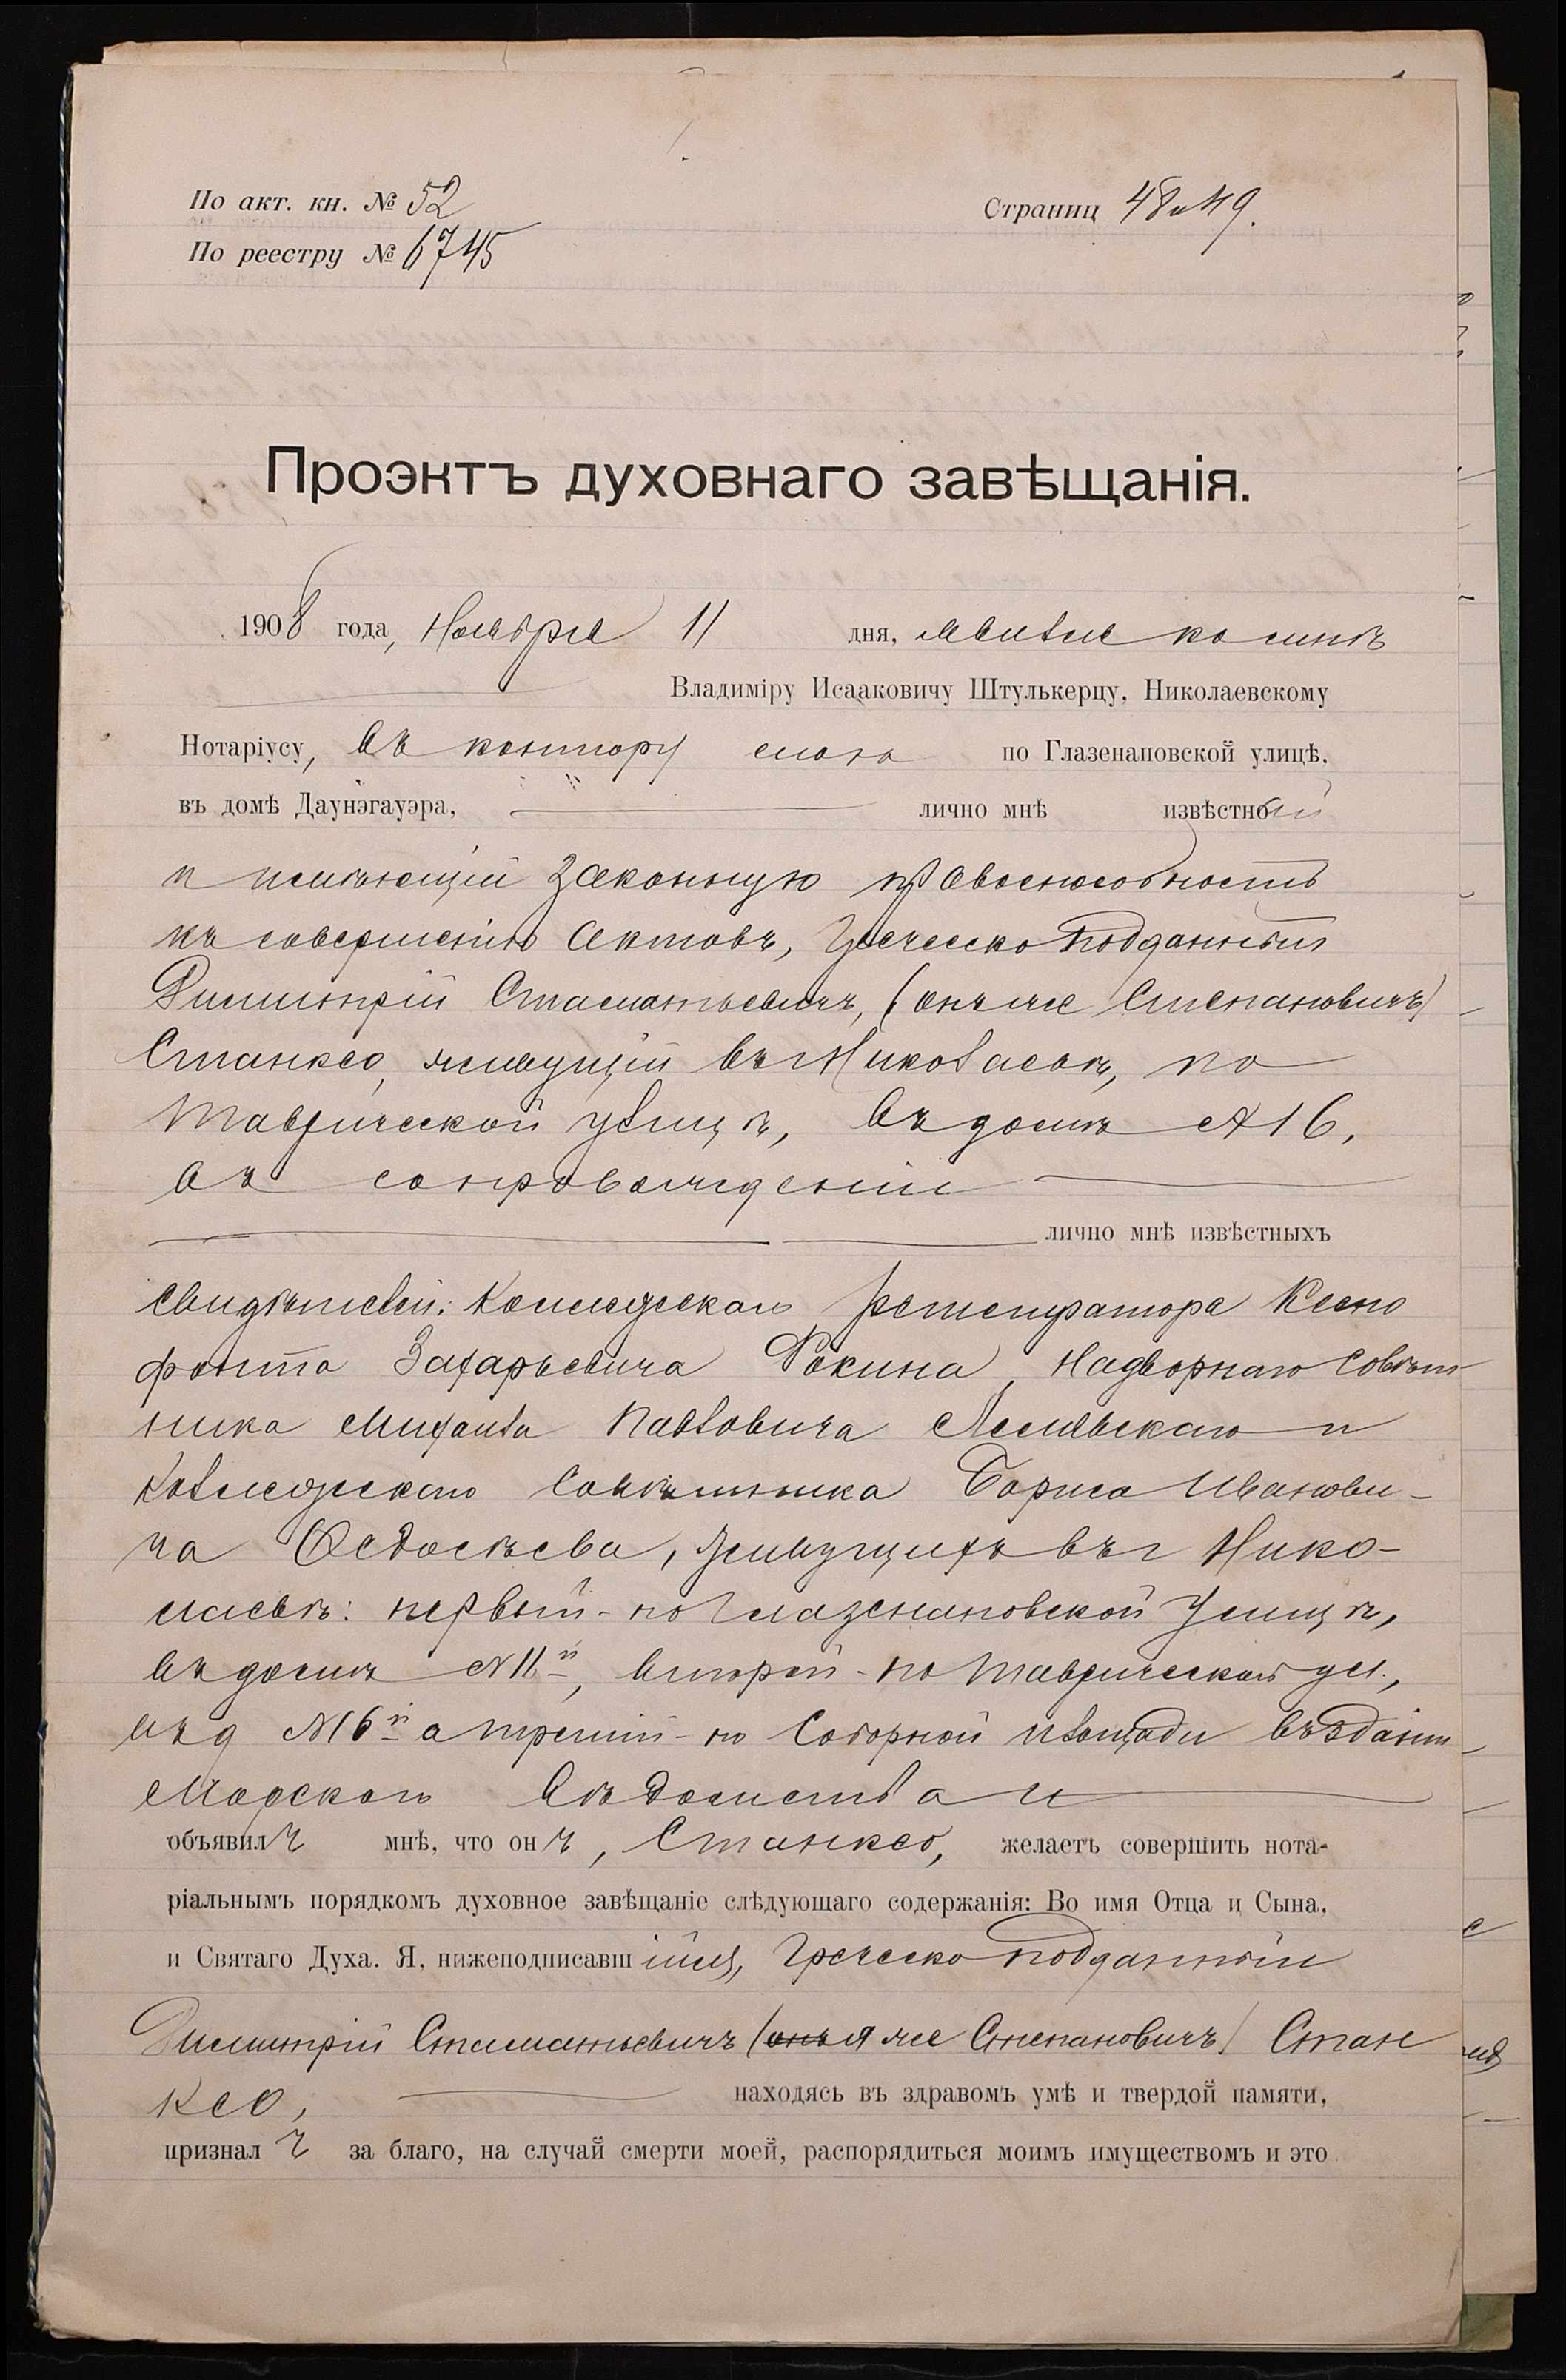 По акт. кн. № 52
Страниц 48 и 49.
По реестру № 6745
Проэктъ духовнаго завѣщанія.
1908 года, Ноября 11 дня, явился ко мнѣ
Владиміру Исааковичу Штулькерцу, Николаевскому
Нотаріусу, въ контору мою по Глазенаповской улицѣ,
въ домѣ Даунэгауэра, лично мнѣ извѣстный
и имѣющій законную правоспособность
къ совершенію актовъ, Греческоподданный
Димитрій Стаматьевичъ, (онъ же Степановичъ)
Станксо, живущій въ г Николаевѣ, по
Таврической улицѣ, въ домѣ № 16,
въ сопровожденіи
лично мнѣ извѣстныхъ
свидѣтелей: Коллежскаго регистратора Ксено
фонта Захарьевича Фокина, Надворнаго Совѣт
ника Михаила Павловича и
Коллежскаго Совѣтника Бориса Иванови-
ча Федосѣева, живущихъ въ г Нико-
лаевѣ: первый - по Глазенаповской улицѣ,
въ домѣ № 11й, второй - по Таврической ул.,
въ д № 16й а третій - по Соборной площади въ зданіи
Морского Вѣдомства и
объявилъ мнѣ, что онъ, Станксо, желаетъ совершить нота-
ріальнымъ порядкомъ духовное завѣщаніе слѣдующаго содержанія: Во имя Отца и Сына,
и Святаго Духа. Я, нижеподписавшійся, Греческоподданный
Димитрій Стаматьевичъ (онъ я же Степановичъ) Стан
ксо, находясь въ здравомъ умѣ и твердой памяти,
призналъ за благо, на случай смерти моей, распорядиться моимъ имуществомъ и это